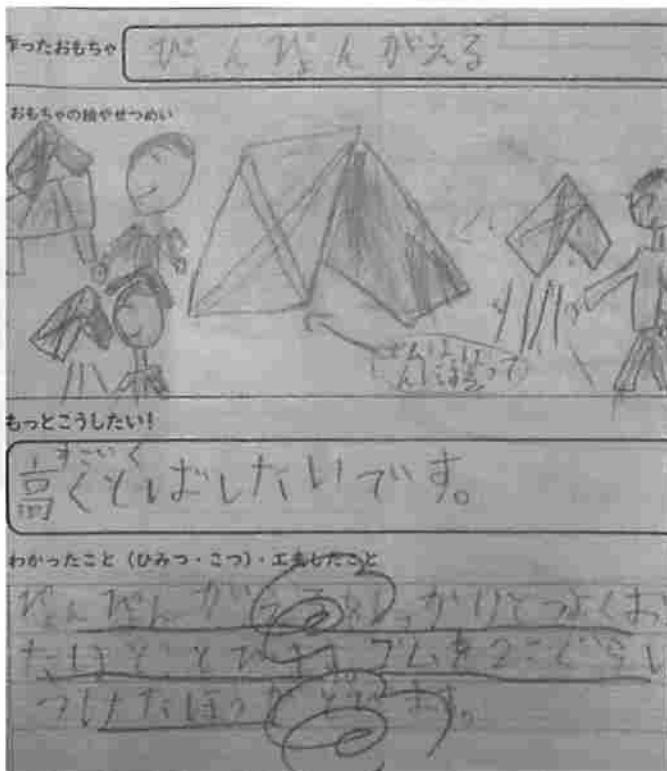 作ったおもちゃ
ぴょんぴょんがえる
おもちゃの絵やせつめい
もっとこうしたい!
すごく
高くとばしたいです。
わかったこと(ひみつ・こつ)・工夫したこと
ぴょんぴょんがえるはしっかりとつよくおっ
たほどとびます。ゴムを2こぐらい
つけたほうがとびます。